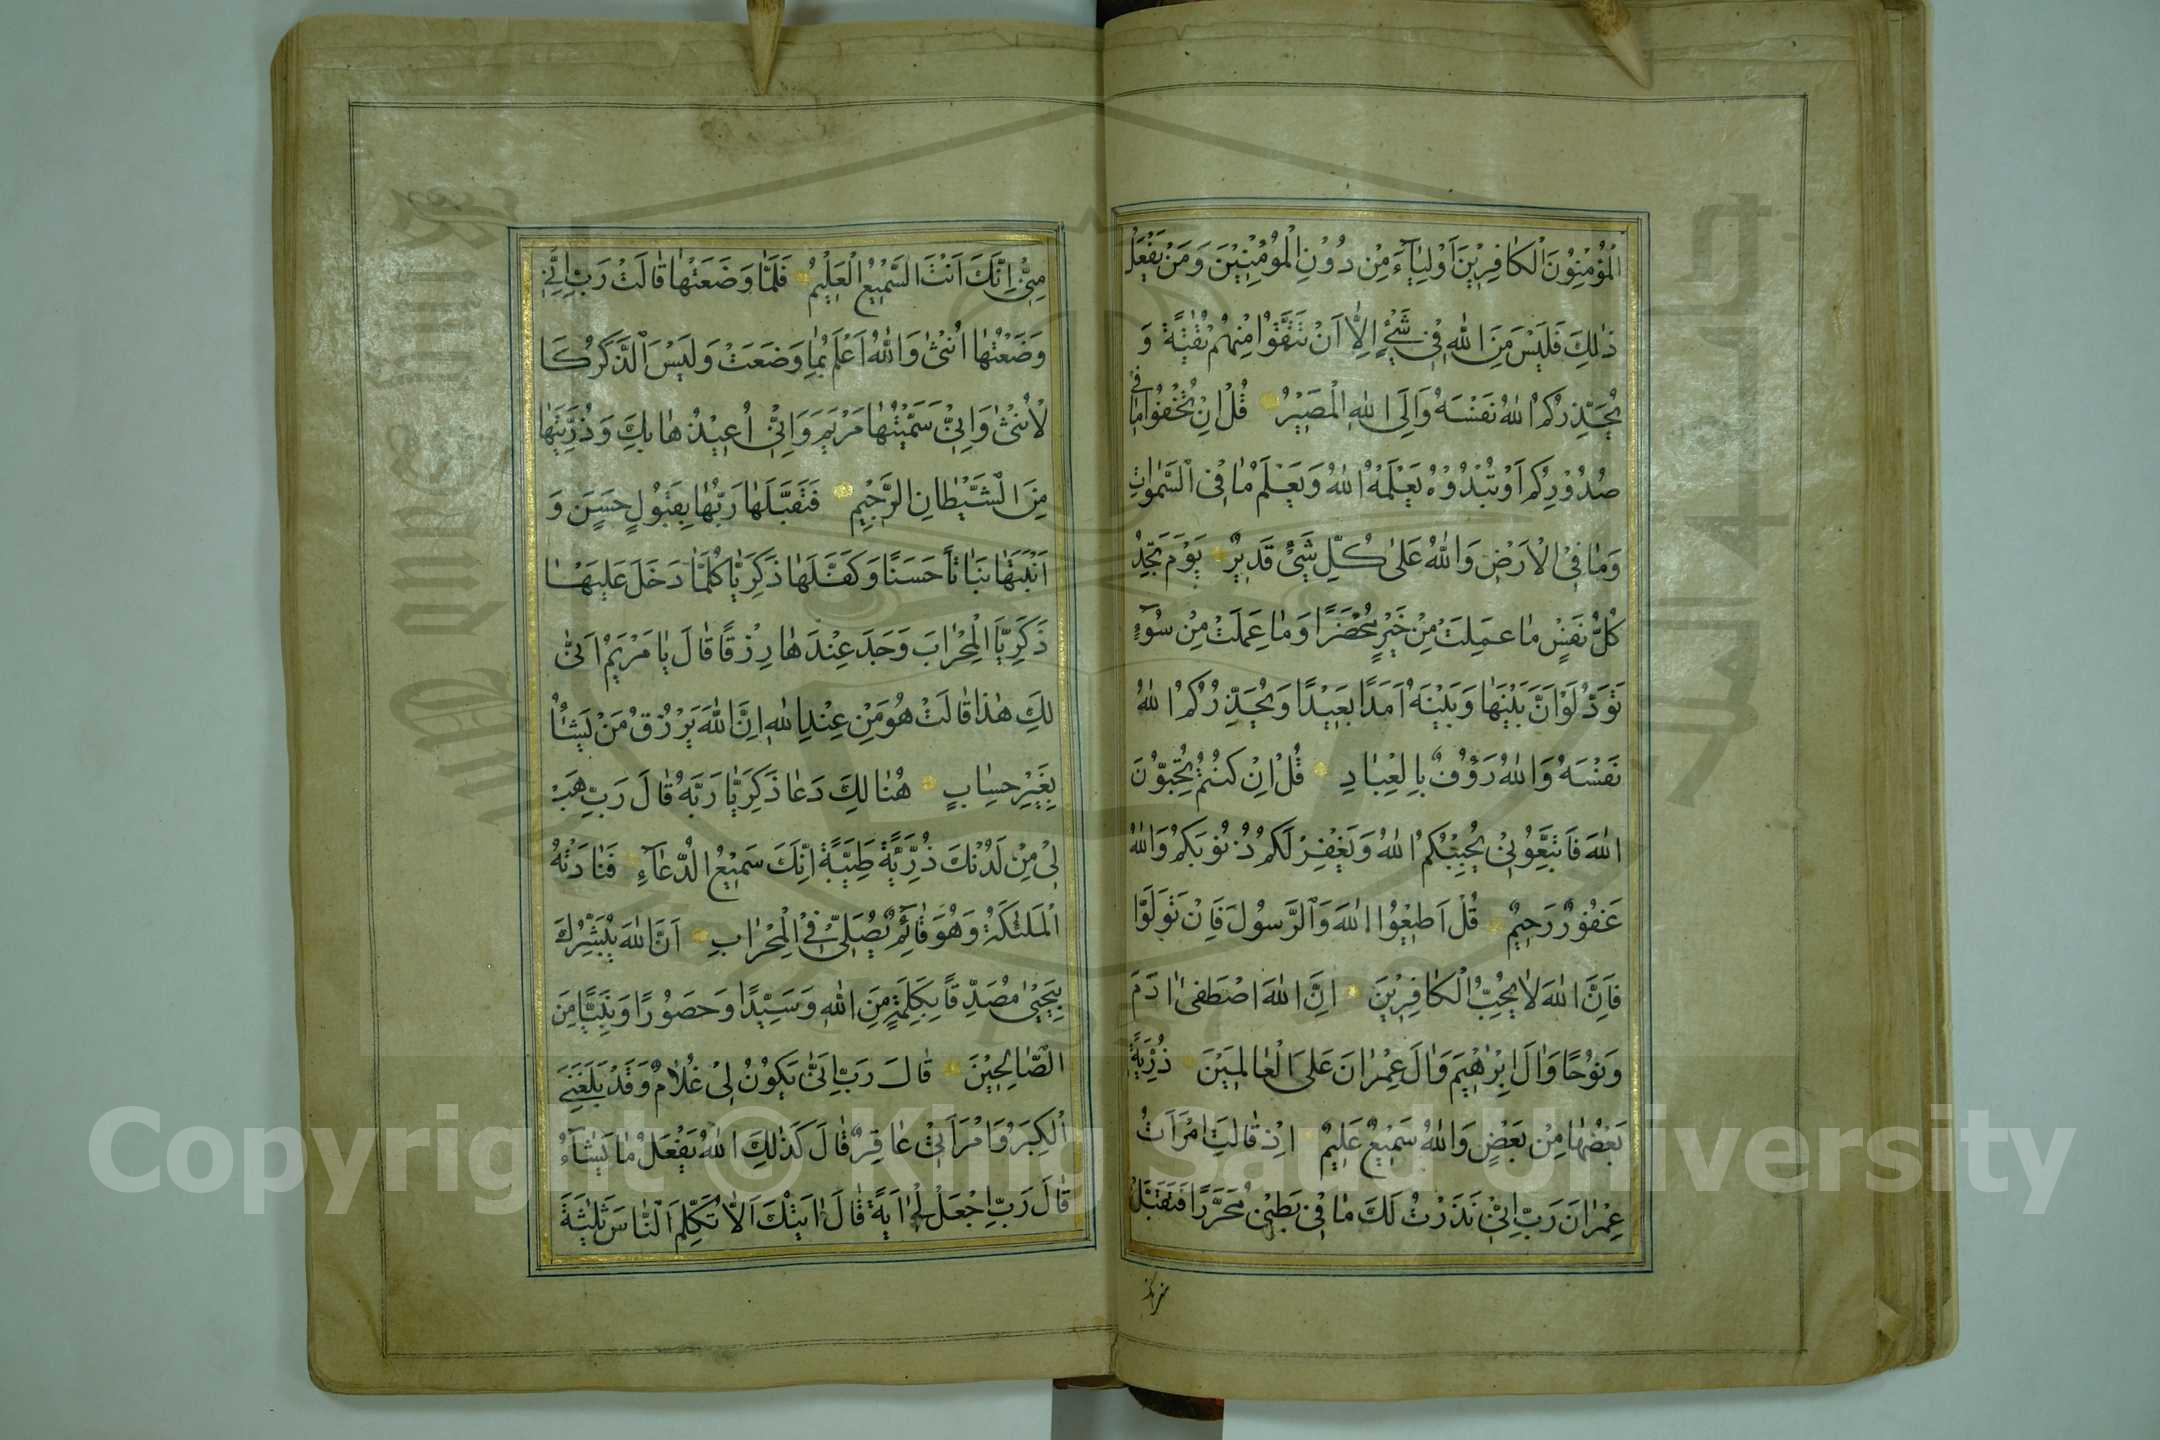 الْمُؤْمِنُونَ الْكَافِرِيْنَ اَوْلِيَآءَ مِنْ دُوْنِ الْمُؤْمِنِيْنَ وَمَنْ يَفْعَلْ
ذٰلِكَ فَلَيْسَ مِنَ اللهِ فِيْ شَيْءٍ اِلَّا اَنْ تَتَّقُوْا مِنْهُمْ تُقٰىةً وَ
يُحَذِّرُكُمُ اللهُ نَفْسَهُ وَاِلَى اللهِ الْمَصِيْرُ قُلْ اِنْ تُخْفُوْا مَا فِيْ
صُدُوْرِكُمْ اَوْ تُبْدُوْهُ يَعْلَمْهُ اللهُ وَيَعْلَمُ مَا فِى السَّمٰوَاتِ
وَمَا فِى الْاَرْضِ وَاللهُ عَلٰى كُلِّ شَيْءٍ قَدِيْرٌ يَوْمَ تَجِدُ
كُلُّ نَفْسٍ مَا عَمِلَتْ مِنْ خَيْرٍ مُحْضَرًا وَمَا عَمِلَتْ مِنْ سُوْٓءٍ
تَوَدُّ لَوْ اَنَّ بَيْنَهَا وَبَيْنَهُ اَمَدًا بَعِيْدًا وَيُحَذِّرُكُمُ اللهُ
نَفْسَهُ وَاللهُ رَؤُفٌ بِالْعِبَادِ قُلْ اِنْ كُنْتُمْ تُحِبُّوْنَ
اللهَ فَاتَّبِعُوْنِيْ يُحْبِبْكُمُ اللهُ وَيَغْفِرْ لَكُمْ ذُنُوْبَكُمْ وَاللهُ
غَفُوْرٌ رَحِيْمٌ قُلْ اَطِيْعُوا اللهَ وَالرَّسُوْلَ فَاِنْ تَوَلَّوْا
فَاِنَّ اللهَ لَا يُحِبُّ الْكَافِرِيْنَ اِنَّ اللهَ اصْطَفٰى اٰدَمَ
وَنُوْحًا وَاٰلَ اِبْرٰهِيْمَ وَاٰلَ عِمْرَانَ عَلَى الْعَالَمِيْنَ ذُرِّيَّةً
بَعْضُهَا مِنْ بَعْضٍ وَاللهُ سَمِيْعٌ عَلِيْمٌ اِذْ قَالَتِ امْرَاَتُ
عِمْرَانَ رَبِّ اِنِّيْ نَذَرْتُ لَكَ مَا فِيْ بَطْنِيْ مُحَرَّرًا فَتَقَبَّلْ
مِنِّيْ اِنَّكَ اَنْتَ السَّمِيْعُ الْعَلِيْمُ فَلَمَّا وَضَعَتْهَا قَالَتْ رَبِّ اِنِّيْ
وَضَعْتُهَا اُنْثٰى وَاللهُ اَعْلَمُ بِمَا وَضَعَتْ وَلَيْسَ الذَّكَرُ كَا
لْاُنْثٰى وَاِنِّيْ سَمَّيْتُهَا مَرْيَمَ وَاِنِّيْ اُعِيْذُهَا بِكَ وَذُرِّيَّتَهَا
مِنَ الشَّيْطَانِ الرَّجِيْمِ فَتَقَبَّلَهَا رَبُّهَا بِقَبُوْلٍ حَسَنٍ وَ
اَنْبَتَهَا نَبَاتًا حَسَنًا وَكَفَّلَهَا زَكَرِيَّا كُلَّمَا دَخَلَ عَلَيْهَا
زَكَرِيَّا الْمِحْرَابَ وَجَدَ عِنْدَهَا رِزْقًا قَالَ يَا مَرْيَمُ اَنّٰى
لَكِ هٰذَا قَالَتْ هُوَ مِنْ عِنْدِ اللهِ اِنَّ اللهَ يَرْزُقُ مَنْ يَشَاءُ
بِغَيْرِ حِسَابٍ هُنَالِكَ دَعَا زَكَرِيَّا رَبَّهُ قَالَ رَبِّ هَبْ
لِيْ مِنْ لَدُنْكَ ذُرِّيَّةً طَيِّبَةً اِنَّكَ سَمِيْعُ الدُّعَآءِ فَنَادَتْهُ
الْمَلٰئِكَةُ وَهُوَ قَآئِمٌ يُصَلِّيْ فِى الْمِحْرَابِ اَنَّ اللهَ يُبَشِّرُكَ
بِيَحْيٰى مُصَدِّقًا بِكَلِمَةٍ مِنَ اللهِ وَسَيِّدًا وَحَصُوْرًا وَنَبِيًّا مِنَ
الصَّالِحِيْنَ قَالَ رَبِّ اَنّٰى يَكُوْنُ لِيْ غُلَامٌ وَقَدْ بَلَغَنِيَ
الْكِبَرُ وَامْرَاَتِيْ عَاقِرٌ قَالَ كَذٰلِكَ اللهُ يَفْعَلُ مَا يَشَآءُ
قَالَ رَبِّ اجْعَلْ لِيْ اٰيَةً قَالَ اٰيَتُكَ اَلَّا تُكَلِّمَ النَّاسَ ثَلٰثَةَ
Copyright © King Saud University